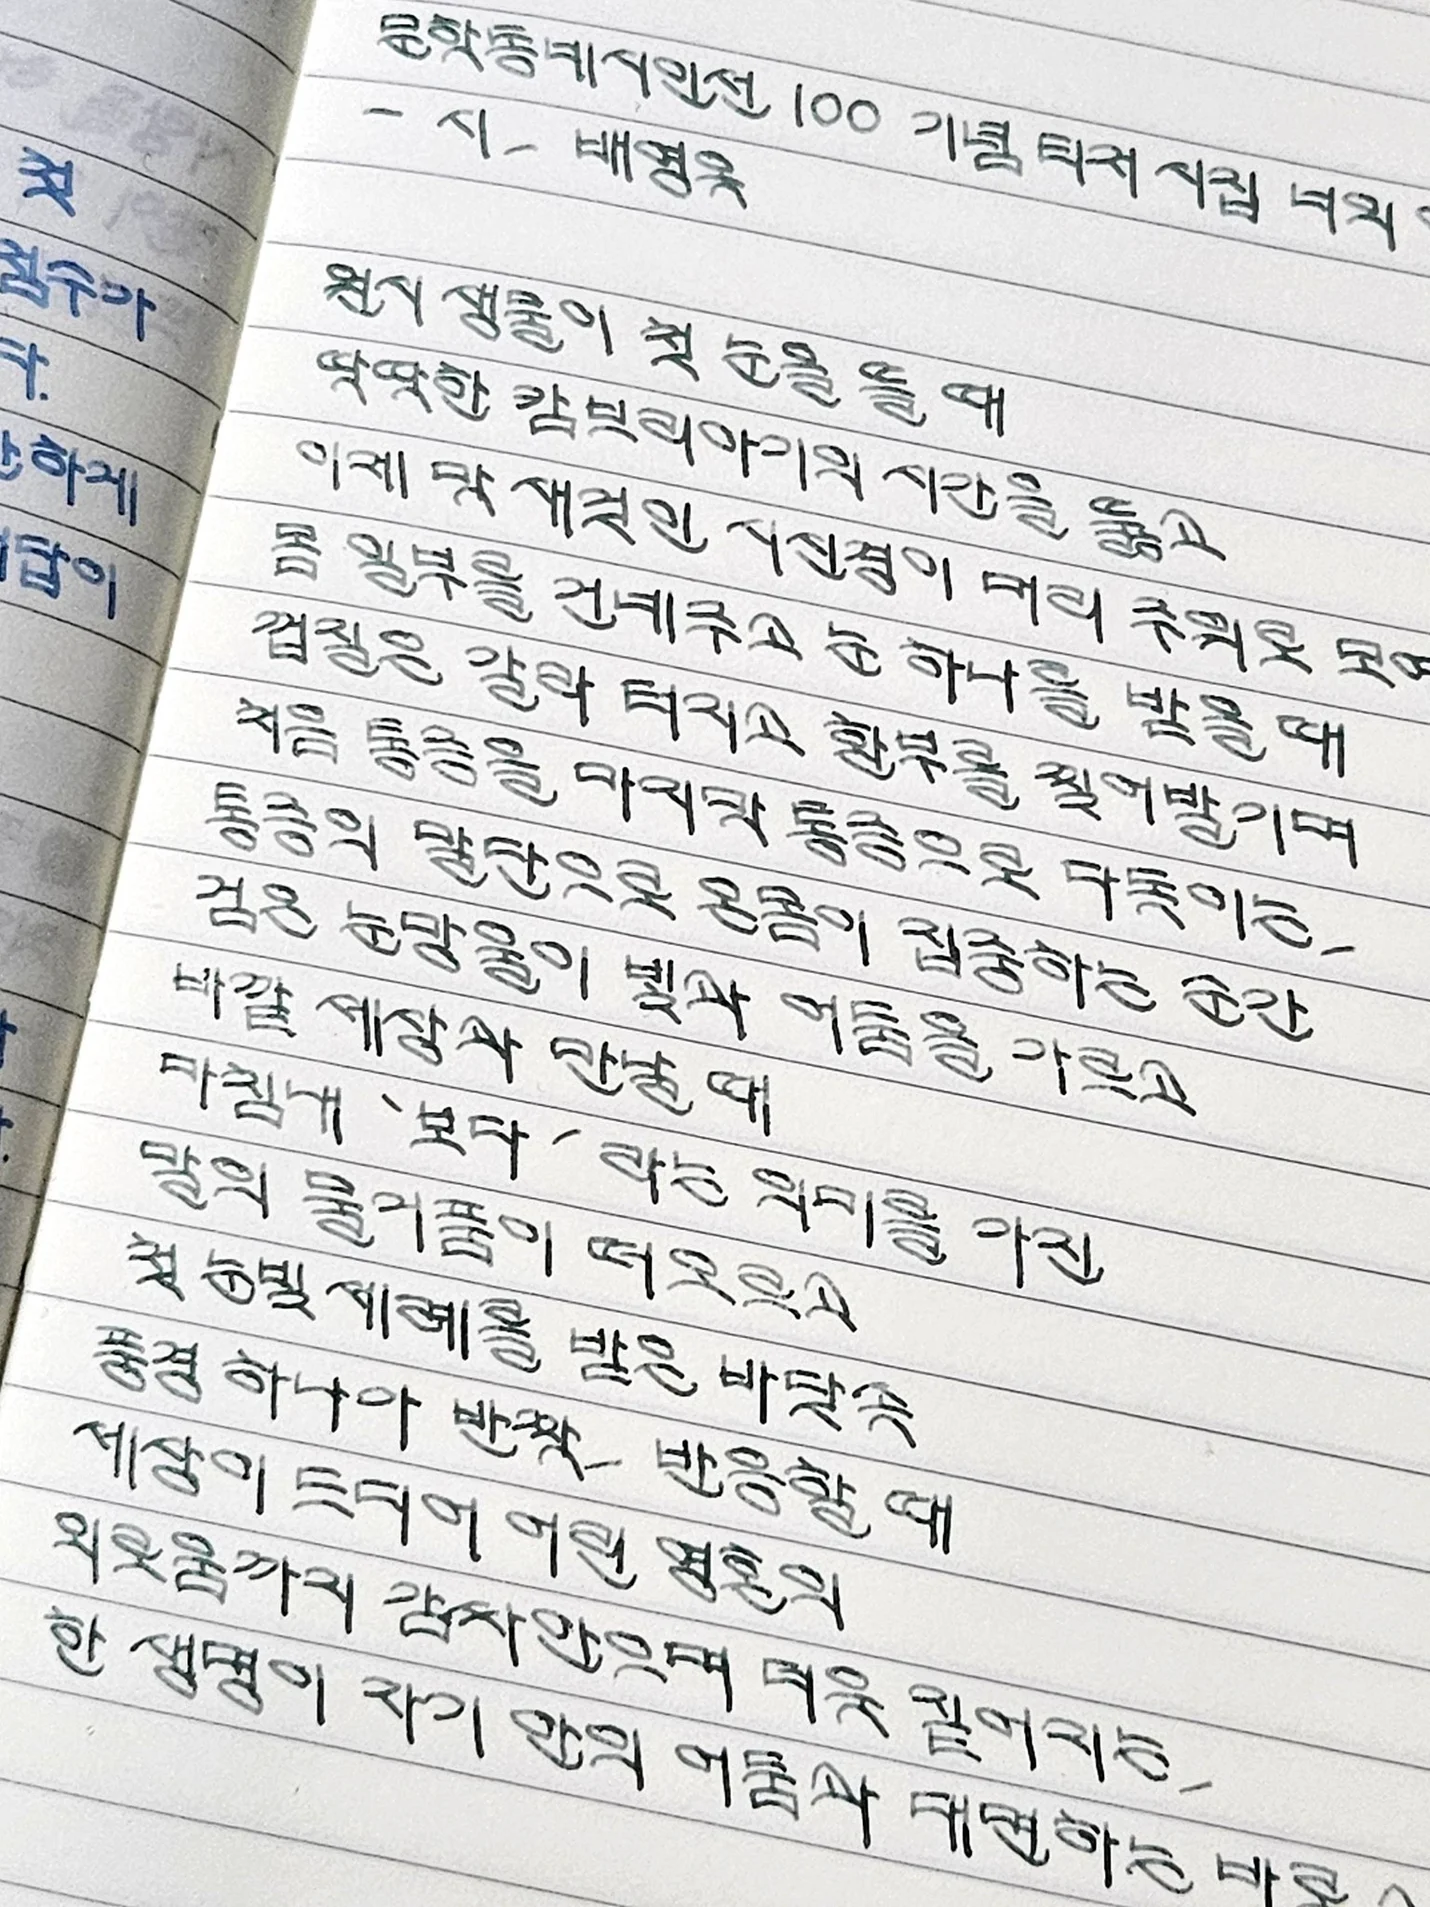 첫
점수가
다.
하게
답이
문학동네시인선 100 기념 티저 시집 너의
- 시 - 배영옥
원시 생물이 첫 눈을 뜰 때
깜깜한 캄브리아기의 시간을 뚫고
이제 막 생겨난 시신경이 머리 주위로 모여
몸 일부를 건네주고 눈 하나를 받을 때
껍질은 갈라 터지고 환부를 찢어발기며
처음 통증을 마지막 통증으로 다독이는,
통증의 발단으로 온몸이 집중하는 순간
검은 눈망울이 빛과 어둠을 가르고
바깥 세상과 만날 때
마침내 '보다' 라는 의미를 가진
말의 물거품이 번으르고
첫 눈빛 세례를 받은 바닷속
풍경 하나가 반짝, 반응할 때
세상이 드디어 어린 영혼의
의붓몸가지 감싸안으며 더욱 깊어지는,
한 생명이 자기 안의 어둠과 대면하는 바로